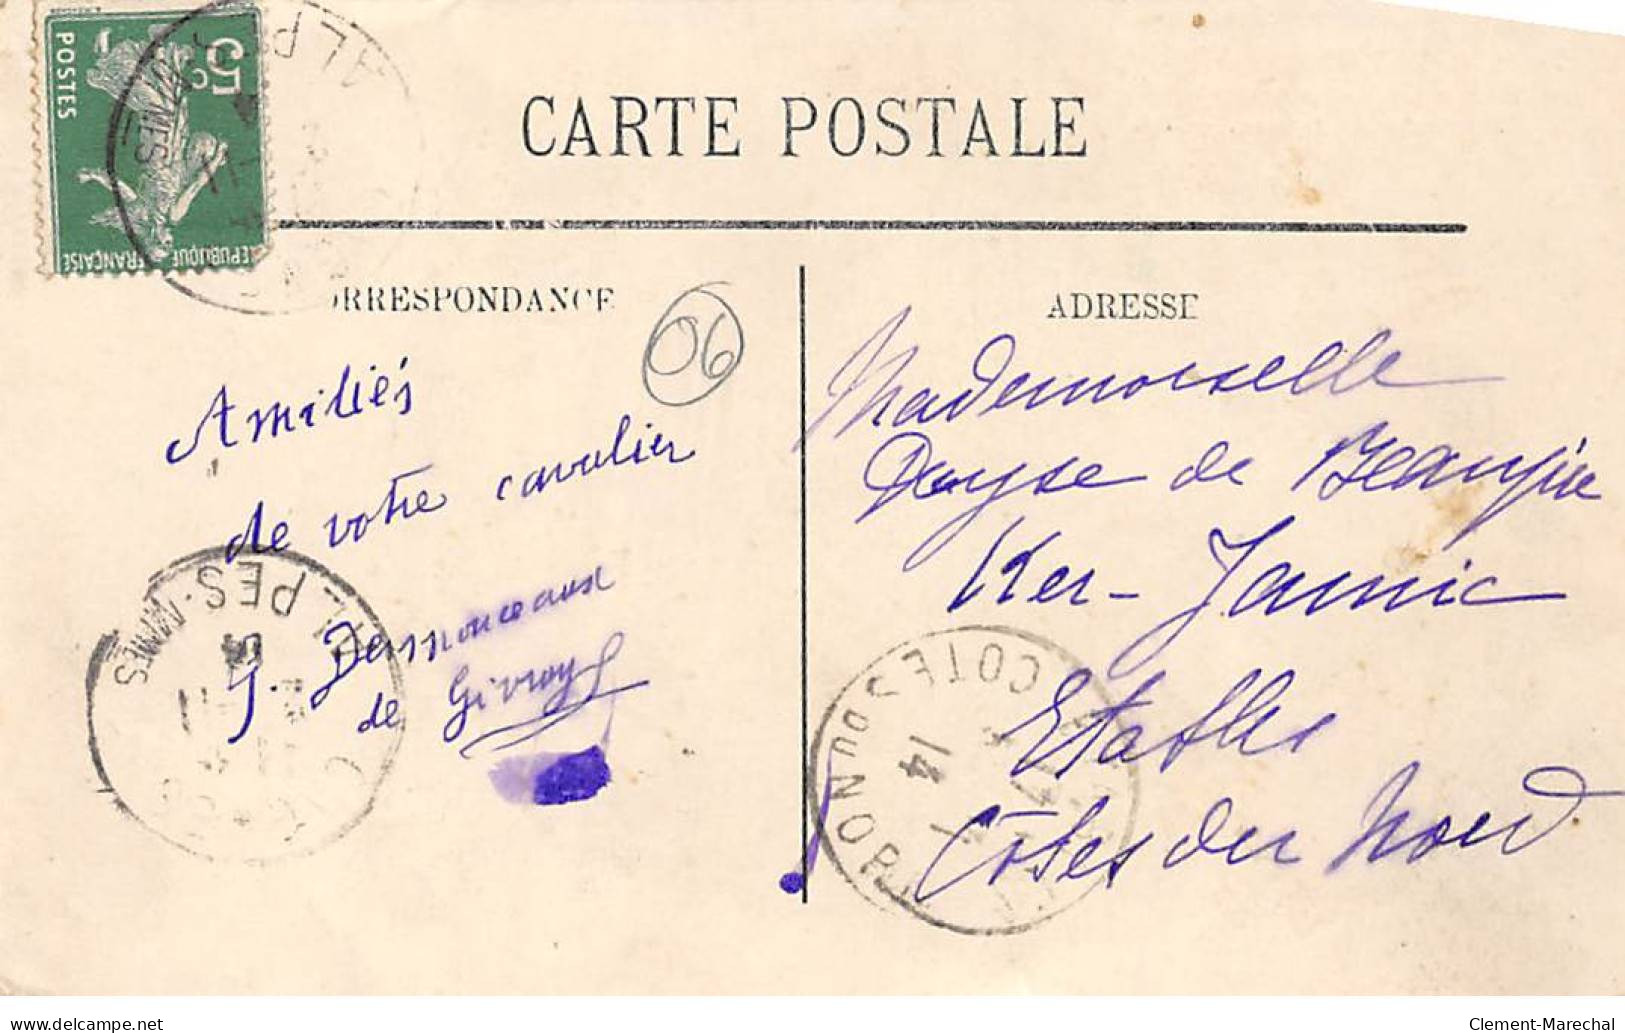 5c
POSTES
REPUBLIQUE FRANÇAISE
ALPES MMES
CARTE POSTALE
CORRESPONDANCE
ADRESSE
06
Amitiés
de votre cavalier
G. Desmonceaux
de Givray
ALPES-MMES
Mademoiselle
Deyse de Beaupin
Ker-Jannic
Etables
Côtes du Nord
COTES DU NORD
14
delcampe.net
Clement-Marechal